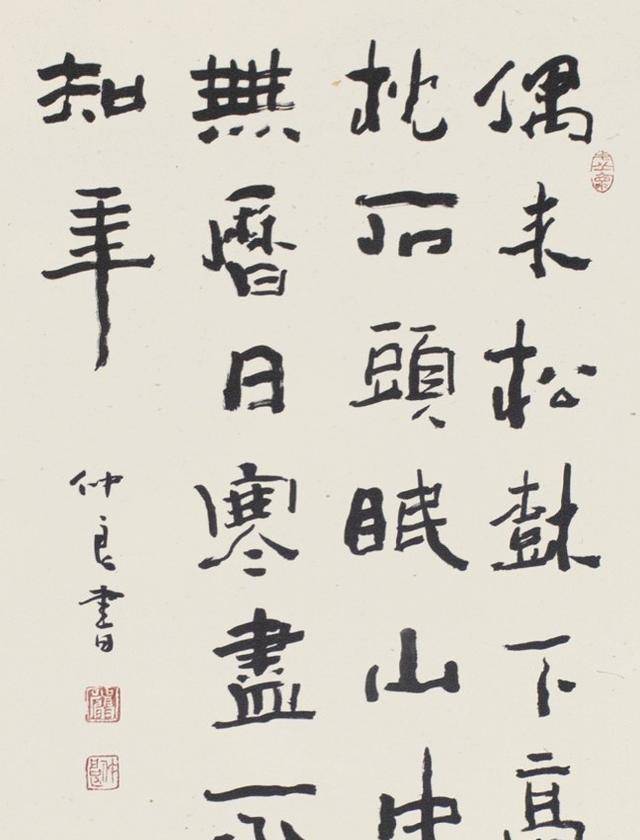 偶来松樹下高
枕石頭眠山中
無曆日寒盡不
知年
仲良書